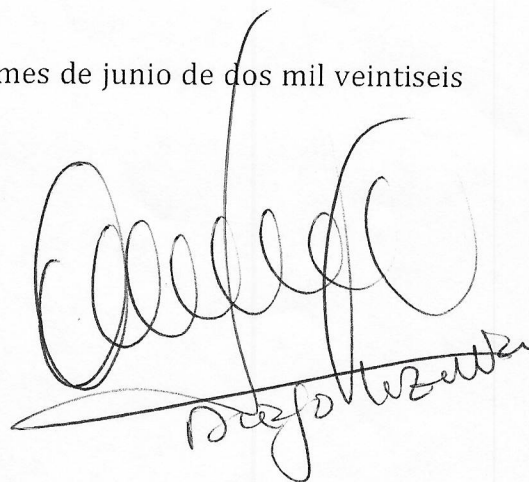 mes de junio de dos mil veintiseis
Diego